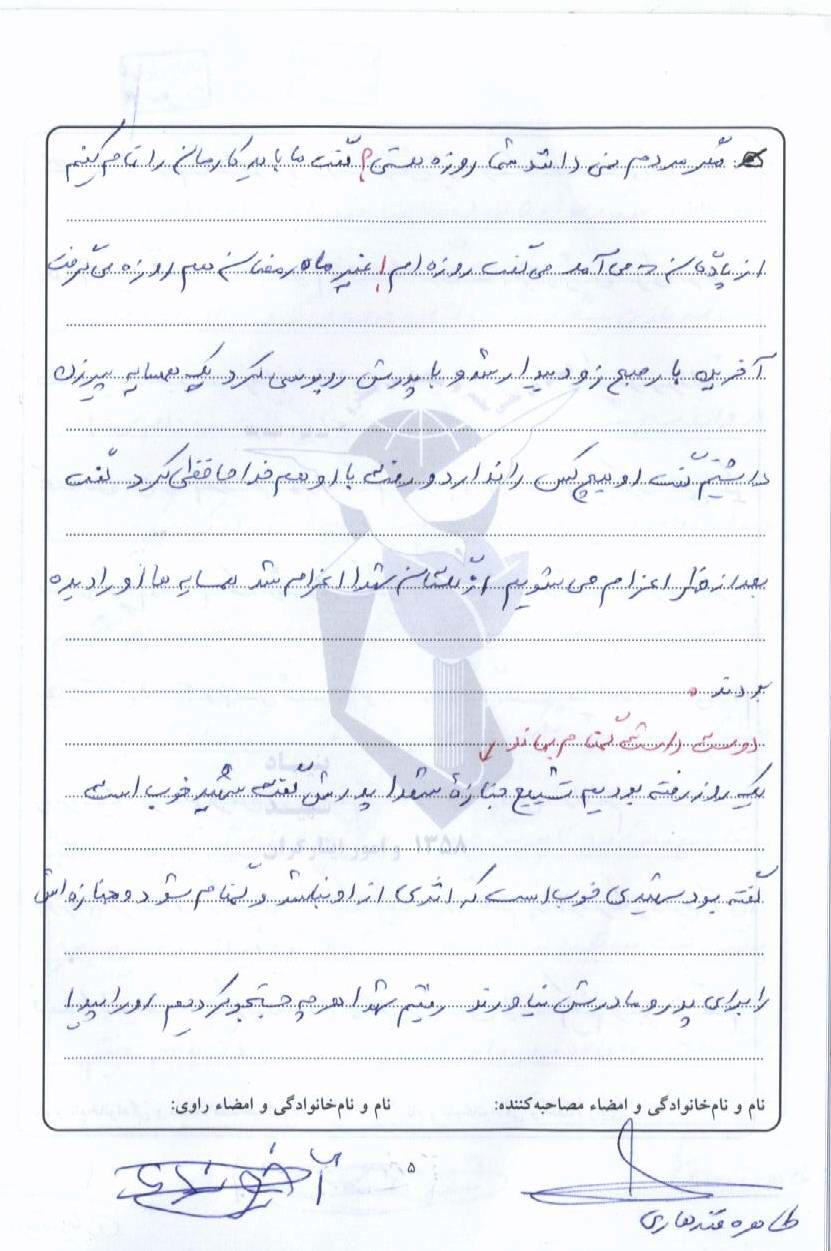 مگر مردم نمی دانند شما روزه هستی؟ گفت ما باید کارمان را تمام کنیم
از پادگان که می آمد می گفت روزه ام! بغیر ماه رمضان هم روزه می گرفت
آخرین بار صبح زود بیدار شد و با پدرش روبوسی کرد یک همسایه پیرزن
داشتیم گفت او هیچ کس را ندارد و رفت با او هم خداحافظی کرد گفت
بعد از ظهر اعزام می شویم از گلستان شهدا اعزام شد همسایه ها او را دیده
بودند.
دوست داشت گمنام بماند
یک روز رفته بودیم تشییع جنازهٔ شهدا پدرش گفت شهید خوب است
گفته بود شهیدی خوب است که اثری از او نباشد و گمنام شود و جنازه اش
را برای پدر و مادرش نیاورند رفتیم شهدا هر چه جستجو کردیم او را پیدا
بنیاد
شهید
و امور ایثارگران
۱۳۵۸
نام و نام‌خانوادگی و امضاء مصاحبه‌کننده: نام و نام‌خانوادگی و امضاء راوی:
۵
طاهره قندهاری